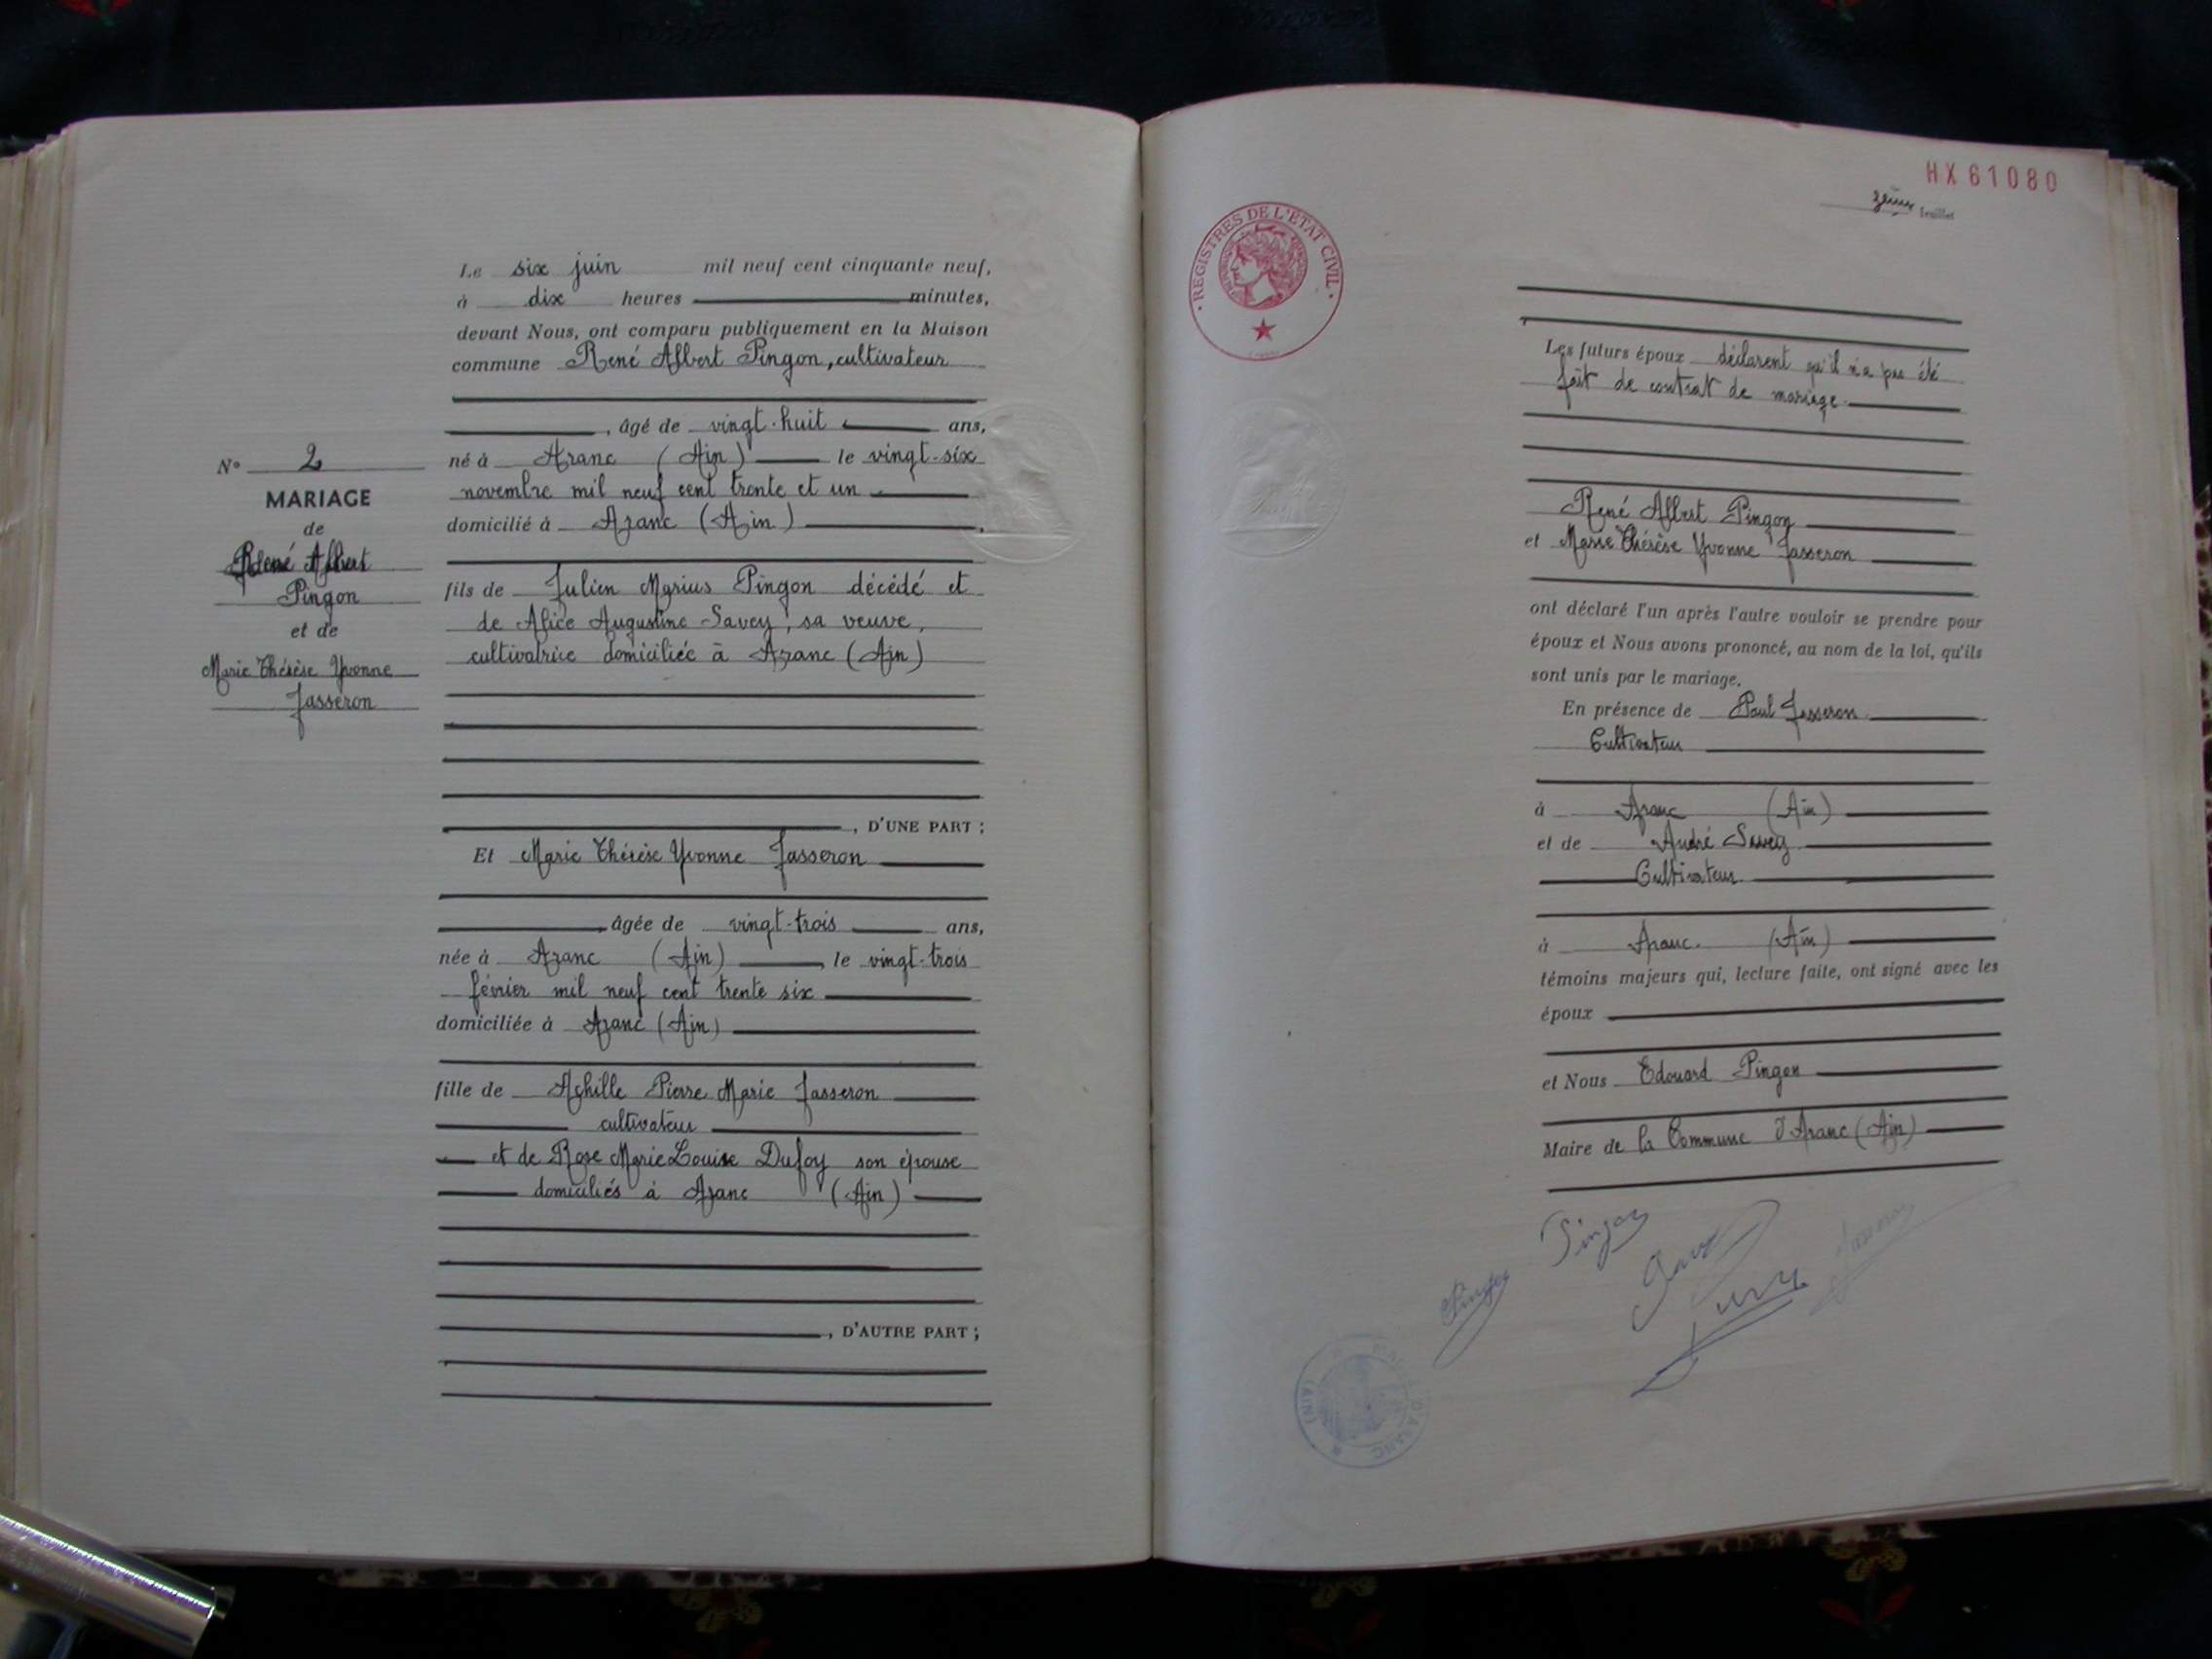 Le six juin mil neuf cent cinquante neuf,
à dix heures minutes,
devant Nous, ont comparu publiquement en la Maison
commune René Albert Pingon, cultivateur
, âgé de vingt-huit ans,
né à Aranc (Ain) le vingt-six
novembre mil neuf cent trente et un
domicilié à Aranc (Ain) ,
fils de Julien Marius Pingon décédé et
de Alice Augustine Savey, sa veuve,
cultivatrice domiciliée à Aranc (Ain)
, D'UNE PART ;
Et Marie Thérèse Yvonne Jasseron
, âgée de vingt-trois ans,
née à Aranc (Ain) , le vingt-trois
février mil neuf cent trente six
domiciliée à Aranc (Ain)
fille de Achille Pierre Marie Jasseron
cultivateur
et de Rose Marie Louise Dufoy son épouse
domiciliés à Aranc (Ain)
, D'AUTRE PART ;
N° 2
MARIAGE
de
René Albert
Pingon
et de
Marie Thérèse Yvonne
Jasseron
HX 61080
feuillet
REGISTRES DE L'ETAT CIVIL
Les futurs époux déclarent qu'il n'a pas été
fait de contrat de mariage.
René Albert Pingon
et Marie Thérèse Yvonne Jasseron
ont déclaré l'un après l'autre vouloir se prendre pour
époux et Nous avons prononcé, au nom de la loi, qu'ils
sont unis par le mariage.
En présence de Paul Jasseron
Cultivateur
à Aranc (Ain)
et de André Savey
Cultivateur
à Aranc. (Ain)
témoins majeurs qui, lecture faite, ont signé avec les
époux
et Nous Edouard Pingon
Maire de la Commune d'Aranc (Ain)
Pingon
Pingon
D'ARANC
(AIN)